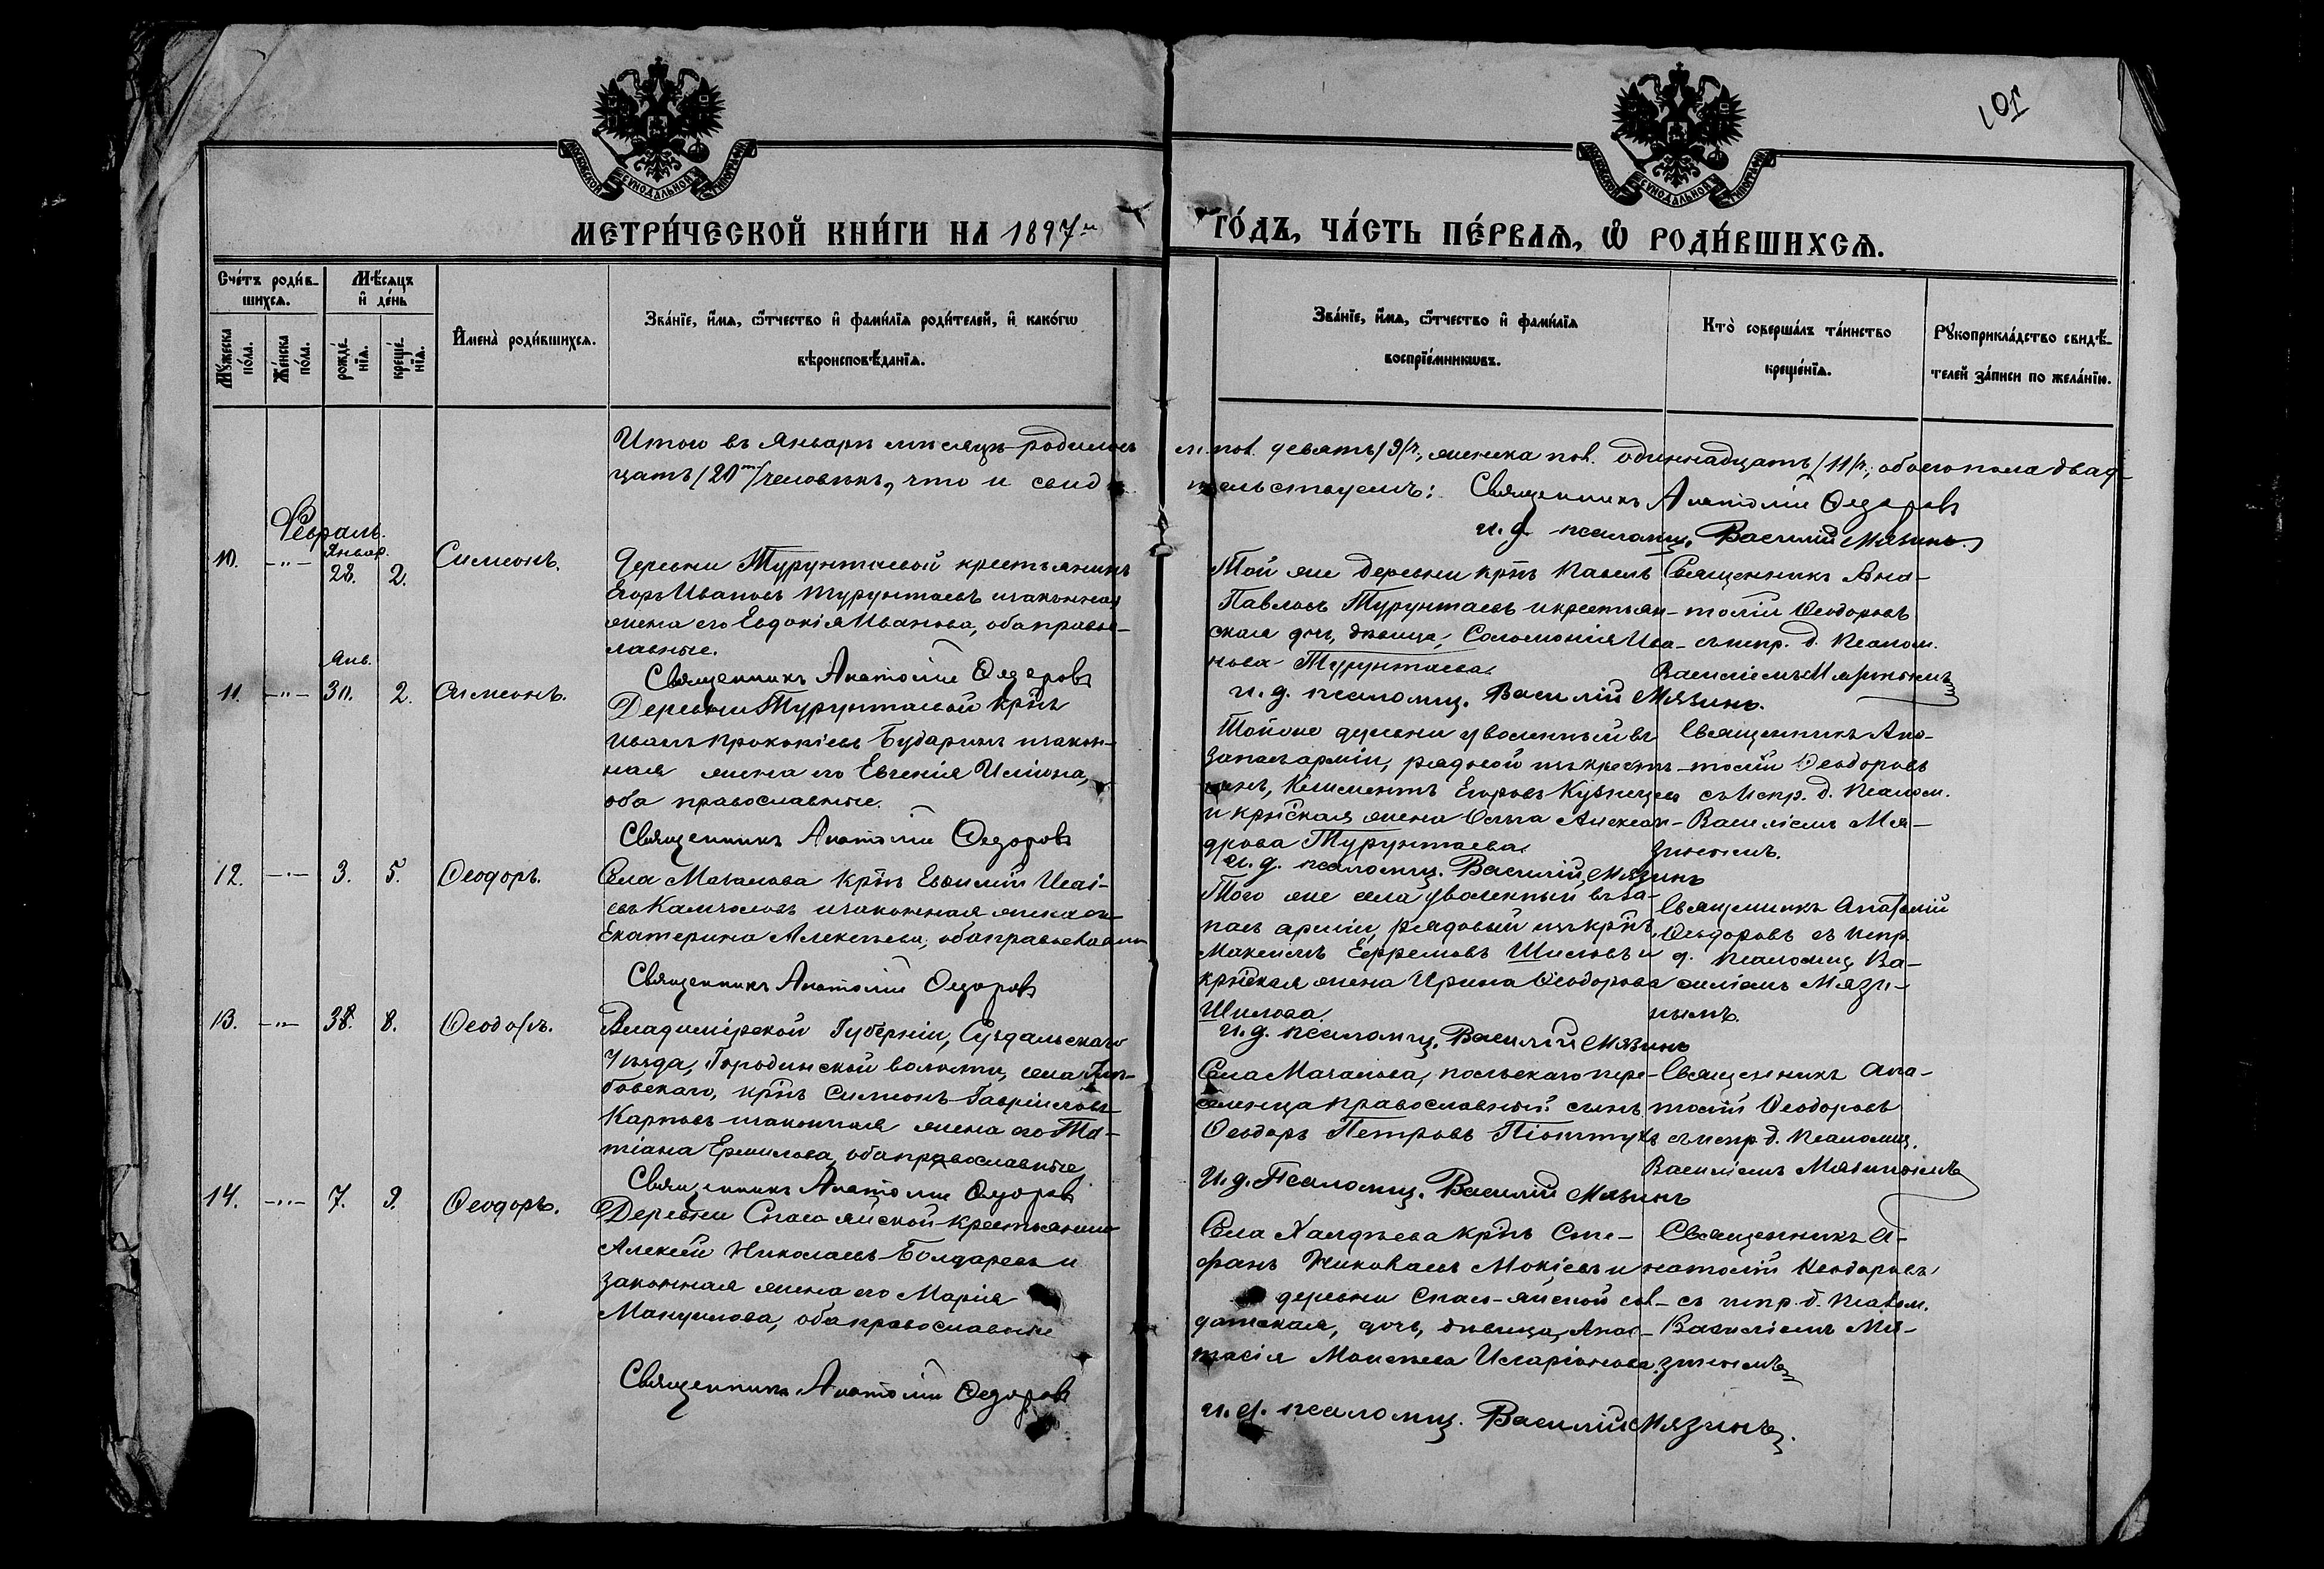 101
МОСКОВСКОЙ СѴНОДАЛЬНОЙ ТИПОГРАФІИ
МОСКОВСКОЙ СѴНОДАЛЬНОЙ ТИПОГРАФІИ
МЕТРИ́ЧЕСКОЙ КНИ́ГИ НА 1897й ГО́ДЪ, ЧА́СТЬ ПЕ́РВАѦ, Ѽ РОДИ́ВШИХСѦ.
Сче́тъ роди́в-
шихсѧ.
Мꙋжеска по́ла.
Же́нска по́ла.
Мѣ́сѧцъ
и҆ де́нь
рожде́нїѧ.
креще́нїѧ.
И҆мена̀ роди́вшихсѧ.
Зва́нїе, и҆́мѧ, ѻ҆́тчество и҆ фами́лїѧ роди́телей, и҆ како́гѡ
вѣроисповѣ́данїѧ.
Зва́нїе, и҆́мѧ, ѻ҆́тчество и҆ фами́лїѧ
воспрїе́мникѡвъ.
Кто̀ соверша́лъ та́инство
креще́нїѧ.
Рꙋкоприкла́дство свидѣ́-
телей за́писи по жела́нїю.
Итого въ Январѣ мѣсяцѣ родилось м. пол. девять /9/ч., женска пол. одиннадцать /11/ч.; обоего пола двад-
цать /20ть/ человѣкъ, что и свидѣтельствуемъ: Священникъ Анатолій Ѳедоровъ
и. д. псаломщ. Василій Мязинъ.
Февраль.
10. -"- Январ. 28. 2. Симеонъ.
Деревни Турунтаевой крестьянинъ
Егоръ Ивановъ Турунтаевъ и законная
жена его Евдокія Иванова, оба право-
славные.
Священникъ Анатолій Ѳедоровъ
Той же деревни крнъ Павелъ
Павловъ Турунтаевъ и крестьян-
ская доч, дѣвица, Соломонія Ива-
нова Турунтаева.
и. д. псаломщ. Василій Мязинъ.
Священникъ Ана-
толій Ѳеодоровъ
съ испр. д. Псалом.
Василіемъ Мязинымъ
11. -"- Янв. 30. 2. Симеонъ.
Деревни Турунтаевой крнъ
Иванъ Прокопіевъ Бударинъ и закон-
ная жена его Евгенія
оба православные.
Священникъ Анатолій Ѳедоровъ
Той же деревни уволенный въ
запас арміи, рядовой изъ крест-
янъ, Климентъ Егоровъ Кузнецов
и крнская жена Ольга Алексан-
дрова Турунтаева.
и. д. псаломщ. Василій Мязинъ
Священникъ Ана-
толій Ѳеодоровъ
съ испр. д. Псалом.
Василіемъ Мя-
зинымъ.
12. -"- 3. 5. Ѳеодоръ.
Села крнъ Евѳимій Исаі-
евъ и законная жена его
Екатерина Алексѣева, оба православные
Священникъ Анатолій Ѳедоровъ
Того же села уволенный въ за-
пас арміи, рядовый изъ крнъ
Максимъ Ефремовъ Шиловъ и
крнская жена Ирина Ѳеодорова
Шилова.
и. д. псаломщ. Василій Мязинъ
Священникъ Анатолій
Ѳеодоровъ съ испр.
д. Псаломщ. Ва-
силіемъ Мязи-
нымъ.
13. -"- 8. Ѳеодоръ.
Владимірской Губерніи, Суздальскаго
Уѣзда, Городинской волости, села
крнъ Симеонъ Гавріиловъ
Карповъ и законная жена его Та-
тіана Ермилова, оба православные
Священникъ Анатолій Ѳедоровъ
Села польскаго пере-
селенца православный сынъ
Ѳеодоръ Петровъ
И. д. Псаломщ. Василій Мязинъ
Священникъ Ана-
толій Ѳеодоровъ
съ испр. д. Псаломщ.
Василіемъ Мязинымъ
14. -"- 7. 9. Ѳеодоръ.
Деревни Спасо-айской крестьянинъ
Алексѣй Николаевъ Болдаревъ и
законная жена его Марія
Мануилова, оба православные
Священникъ Анатолій Ѳедоровъ
Села Халдѣева крнъ Сте-
фанъ Николаевъ Мокіевъ и
деревни Спасо-айской сол-
датская, дочь, дѣвица, Анас-
тасія Моисѣева Иларіонова.
и. д. псаломщ. Василій Мязинъ.
Священникъ А-
натолій Ѳеодоровъ
съ испр. д. Псалом.
Василіемъ Мя-
зинымъ